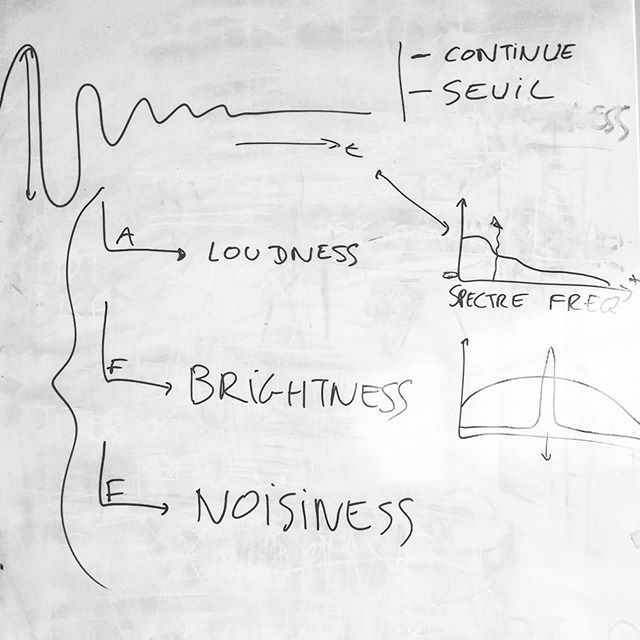 - CONTINUE
- SEUIL
t
A
LOUDNESS
SPECTRE FREQ
F
BRIGHTNESS
F
NOISINESS